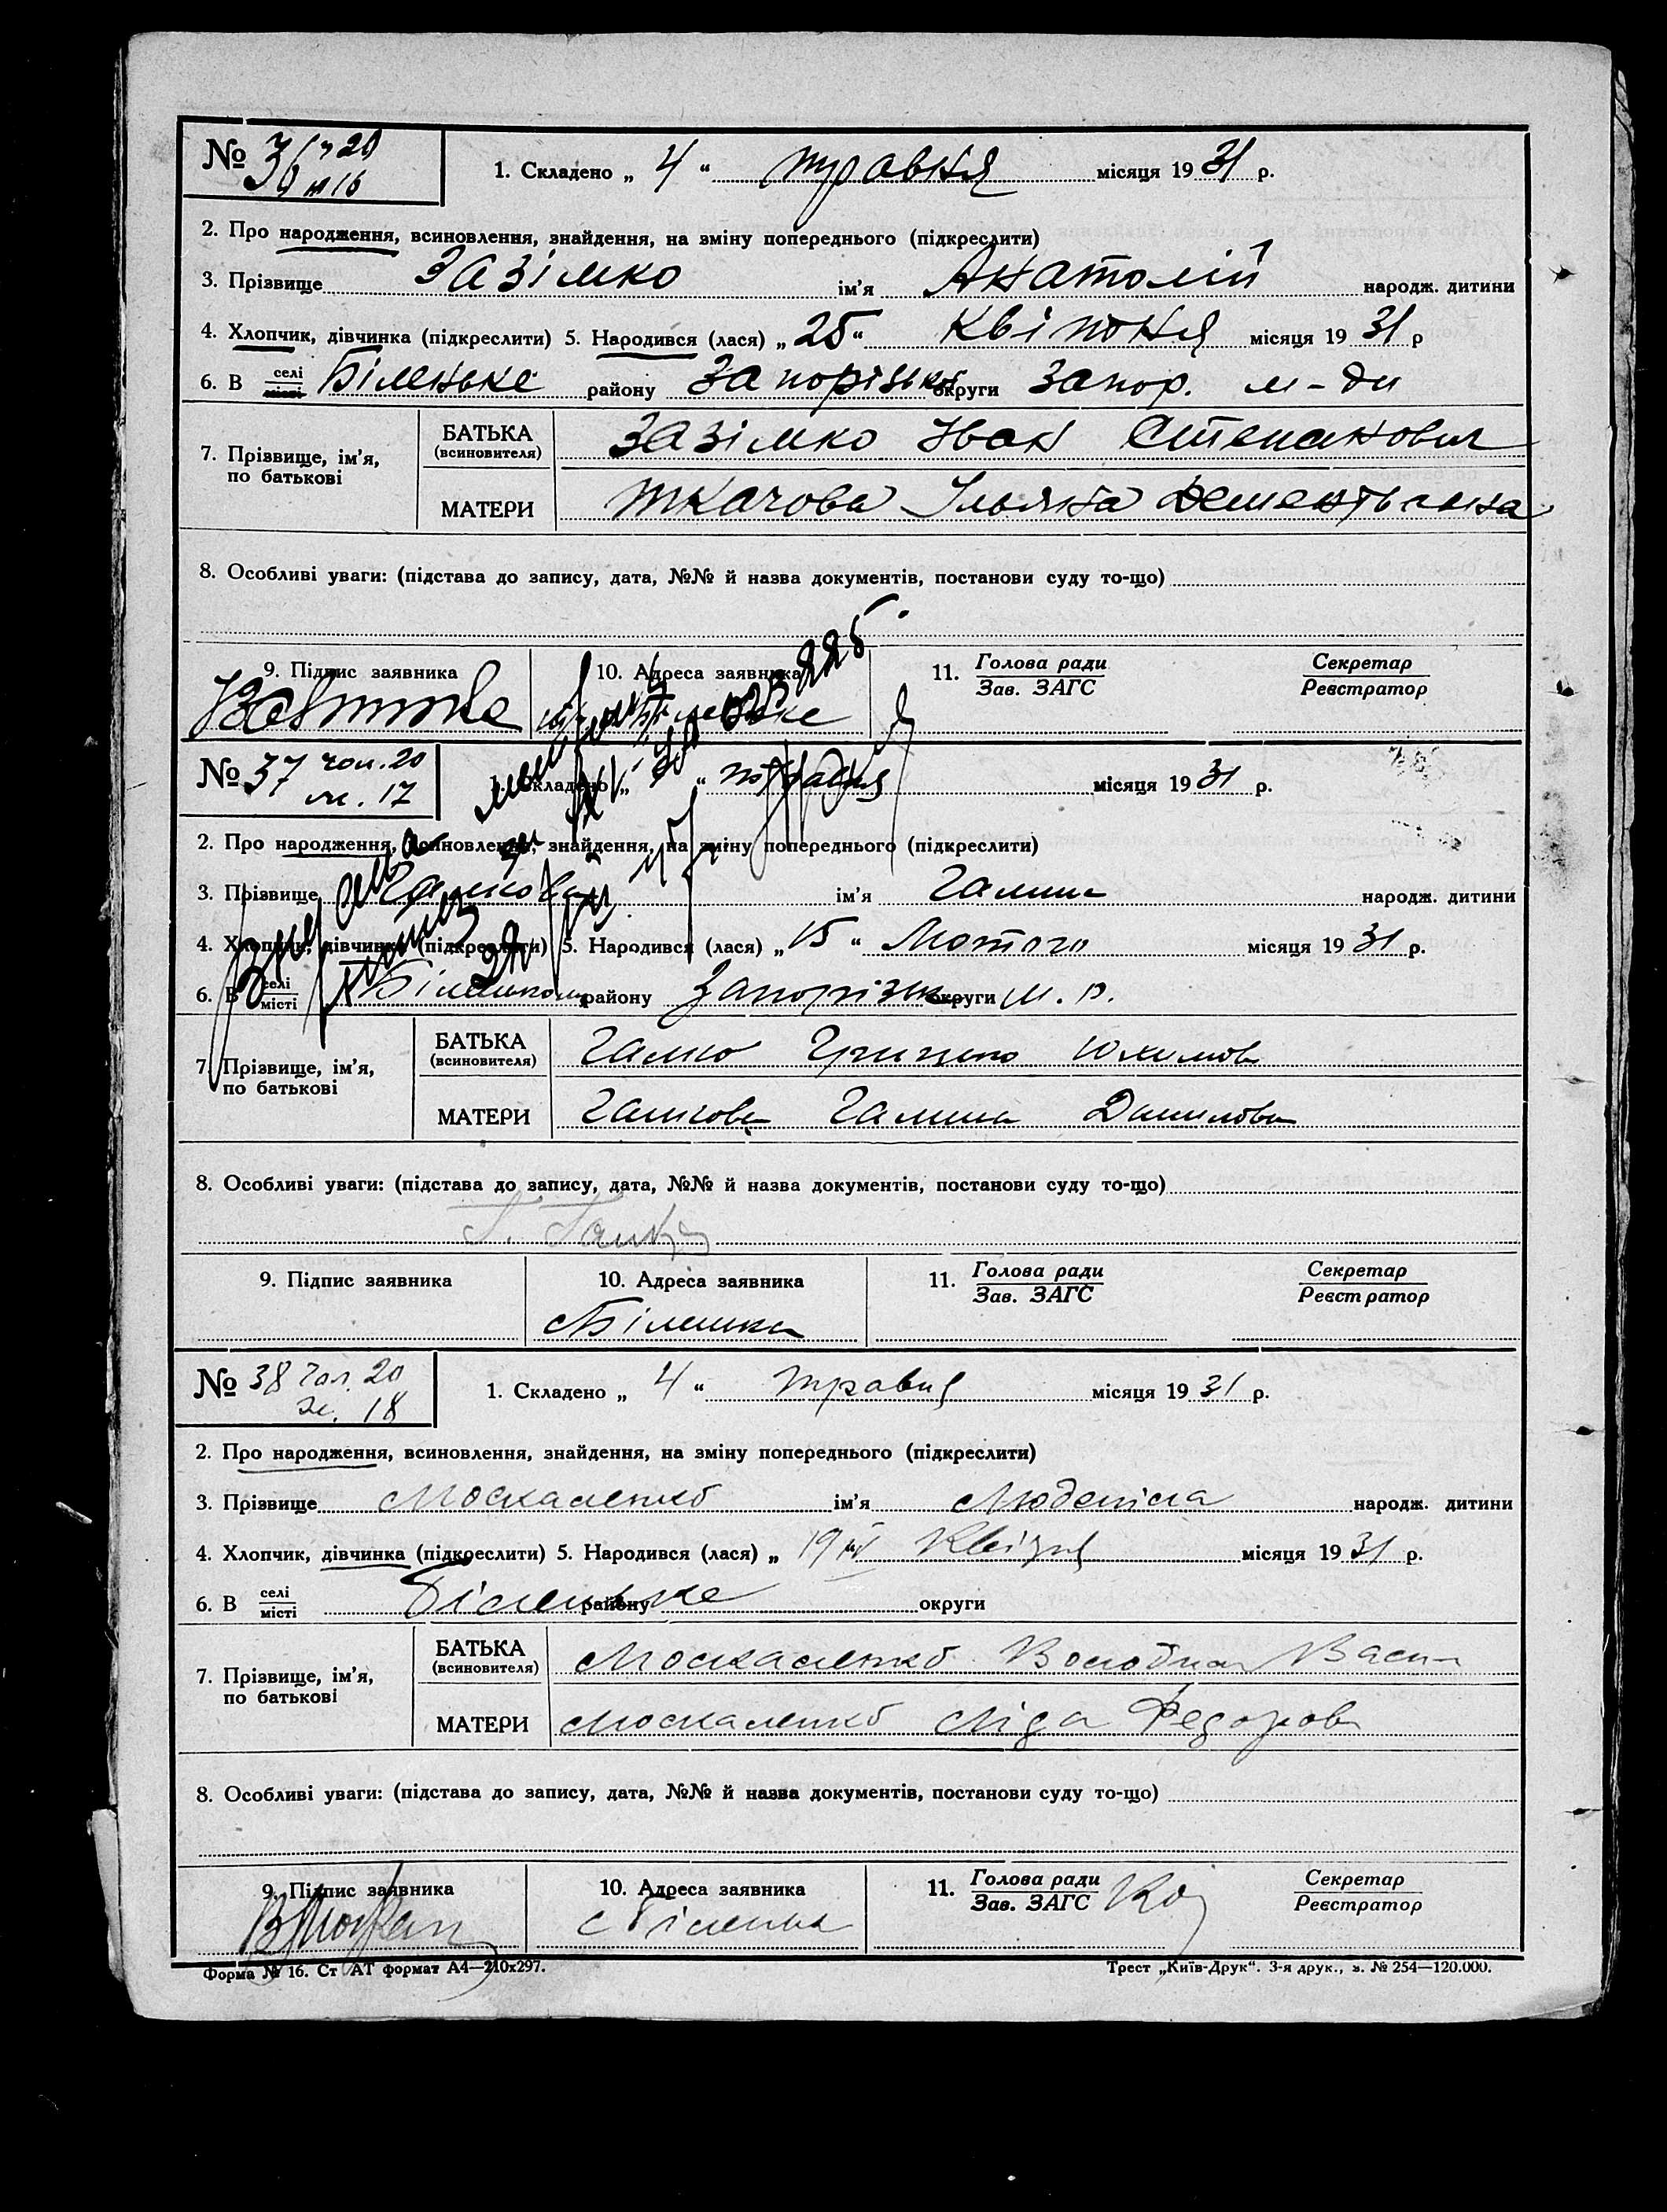 № 36 ч 20
ж 16
1. Складено „ 4 “ травня місяця 1931 р.
2. Про народження, всиновлення, знайдення, на зміну попереднього (підкреслити)
3. Прізвище Зазімко ім'я Анатолій народж. дитини
4. Хлопчик, дівчинка (підкреслити) 5. Народився (лася) „ 25 “ Квітоня місяця 1931 р
6. В селі місті Біленьке району Запорізьк округи Запор. м-ди
7. Прізвище, ім'я, по батькові
БАТЬКА (всиновителя) Зазімко Іван Степанович
МАТЕРИ Ткачова Ульяна Дементьевна
8. Особливі уваги: (підстава до запису, дата, №№ й назва документів, постанови суду то-що)
9. Підпис заявника
10. Адреса заявника Біленьке
11. Голова ради Зав. ЗАГС
Секретар Реєстратор
№ 37 чол. 20
ж. 17
1. Складено „ “ місяця 1931 р.
2. Про народження, всиновлення, знайдення, на зміну попереднього (підкреслити)
3. Прізвище Галкова ім'я Галина народж. дитини
4. Хлопчик, дівчинка (підкреслити) 5. Народився (лася) „ 15 “ Лютого місяця 1931 р.
6. В селі місті району Запорізьк округи
7. Прізвище, ім'я, по батькові
БАТЬКА (всиновителя) Галко Грицько Юхимов
МАТЕРИ Галкова Галина Данилова
8. Особливі уваги: (підстава до запису, дата, №№ й назва документів, постанови суду то-що)
9. Підпис заявника
10. Адреса заявника Біленька
11. Голова ради Зав. ЗАГС
Секретар Реєстратор
№ 38 чол. 20
ж. 18
1. Складено „ 4 “ травня місяця 1931 р.
2. Про народження, всиновлення, знайдення, на зміну попереднього (підкреслити)
3. Прізвище Москаленко ім'я Людміла народж. дитини
4. Хлопчик, дівчинка (підкреслити) 5. Народився (лася) „ 19 IV Квітня місяця 1931 р.
6. В селі місті Біленьке району округи
7. Прізвище, ім'я, по батькові
БАТЬКА (всиновителя) Москаленко Володим Васи
МАТЕРИ Москаленко Ліда Федорова
8. Особливі уваги: (підстава до запису, дата, №№ й назва документів, постанови суду то-що)
9. Підпис заявника
10. Адреса заявника с Біленька
11. Голова ради Зав. ЗАГС
Секретар Реєстратор
Форма № 16. Ст АТ формат А4—210х297.
Трест „Київ-Друк“. 3-я друк., з. № 254—120.000.